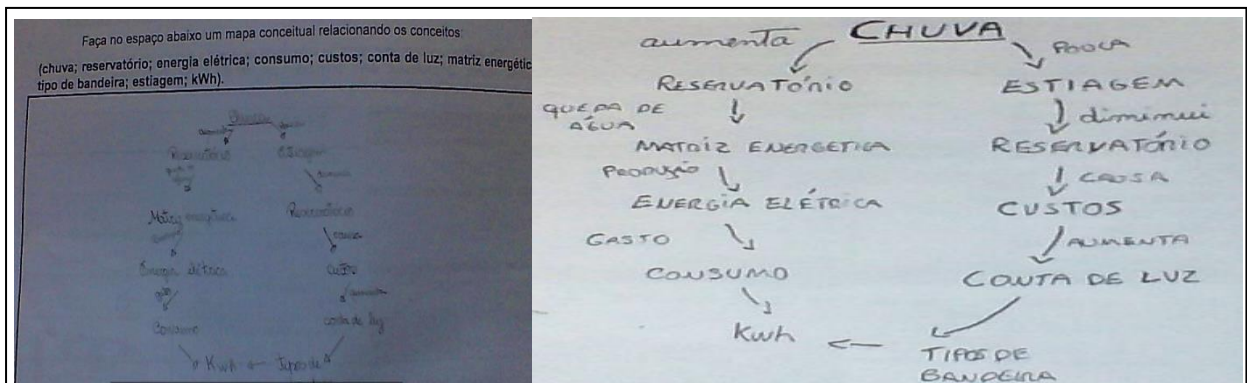 Faça no espaço abaixo um mapa conceitual relacionando os conceitos
(chuva; reservatório; energia elétrica; consumo; custos; conta de luz; matriz energétic
tipo de bandeira; estiagem; kWh).
Reservatório
Matriz energética
Reservatório
Energia elétrica
Custo
Consumo
conta de luz
Kwh
Tipos de
CHUVA
aumenta
POUCA
RESERVATÓRIO
ESTIAGEM
QUEDA DE
ÁGUA
diminui
MATRIZ ENERGETICA
RESERVATÓRIO
PRODUÇÃO
CAUSA
ENERGIA ELÉTRICA
CUSTOS
GASTO
AUMENTA
CONSUMO
CONTA DE LUZ
Kwh
TIPOS DE
BANDEIRA